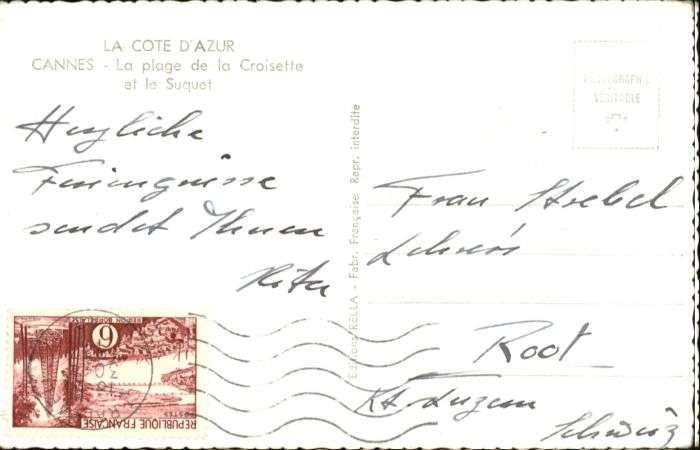 LA COTE D'AZUR
CANNES - La plage de la Croisette
et le Suquet
Herzliche
Feriengrüsse
sendet Ihnen
Rita
Editions RELLA - Fabr. Française Repr. interdite
PHOTOGRAPHIE
VÉRITABLE
Frau Strebel
Lehrer's
Root
Kt. Luzern
Schweiz
6
REGION BORDELAISE
POSTES
REPUBLIQUE FRANÇAISE